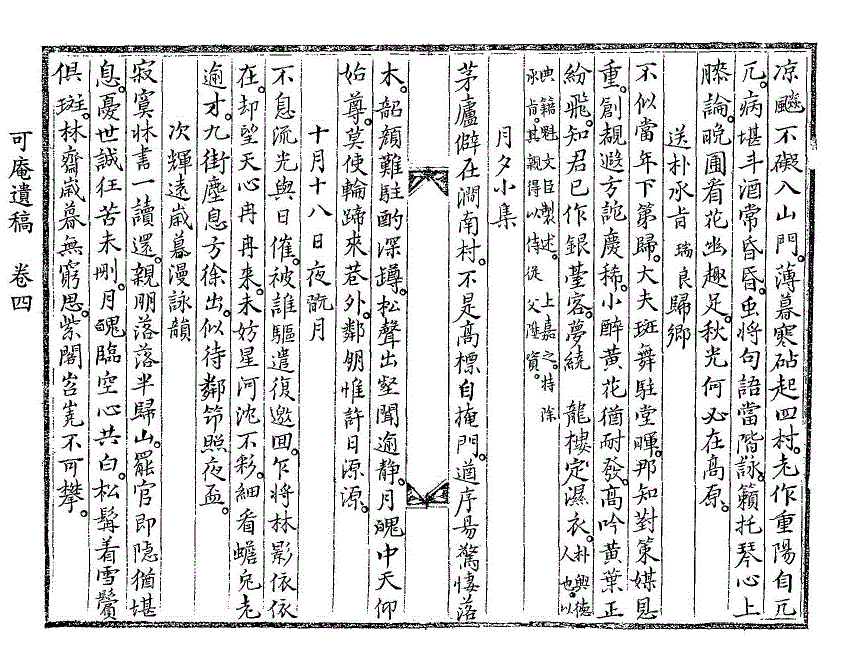 凉飈不礙入山門薄暮寒砧起四村老作重陽自兀
兀病堪斗酒常昏昏虫將句語當階詠籟托琴心上
膝論晩圃看花幽趣足秋光何必在高原
送朴承旨瑞良歸鄕
不似當年下第歸大夫斑舞駐堂暉那知對策媒恩
重創覩遐方詑慶稀小醉黃花猶耐發高吟黃葉正
紛飛知君已作銀臺客夢繞 龍樓定濕衣朴興德人也以
典籍魁文臣製述 上嘉之特除
承旨其親得以侍從父陞資
月夕小集
茅廬僻在澗南村不是高標自掩門遒序易驚悽落
木韶顔難駐酌深罇松聲出壑聞逾靜月魄中天仰
始尊莫使輪蹄來巷外鄰朋惟許日源源
十月十八日夜翫月
不息流光與日催被誰驅遣復邀回乍將林影依依
在却望天心冉冉來未妨星河沈不彩細看蟾兔老
逾才九街塵息方徐出似待鄰筇照夜盃
次輝遠歲暮漫詠韻
寂寞牀書一讀還親朋落落半歸山罷官卽隱猶堪
息憂世誠狂苦未刪月魄臨空心共白松髥着雪鬢
俱斑林齋歲暮無窮思紫閣岧嶤不可攀
可庵遺稿 卷四